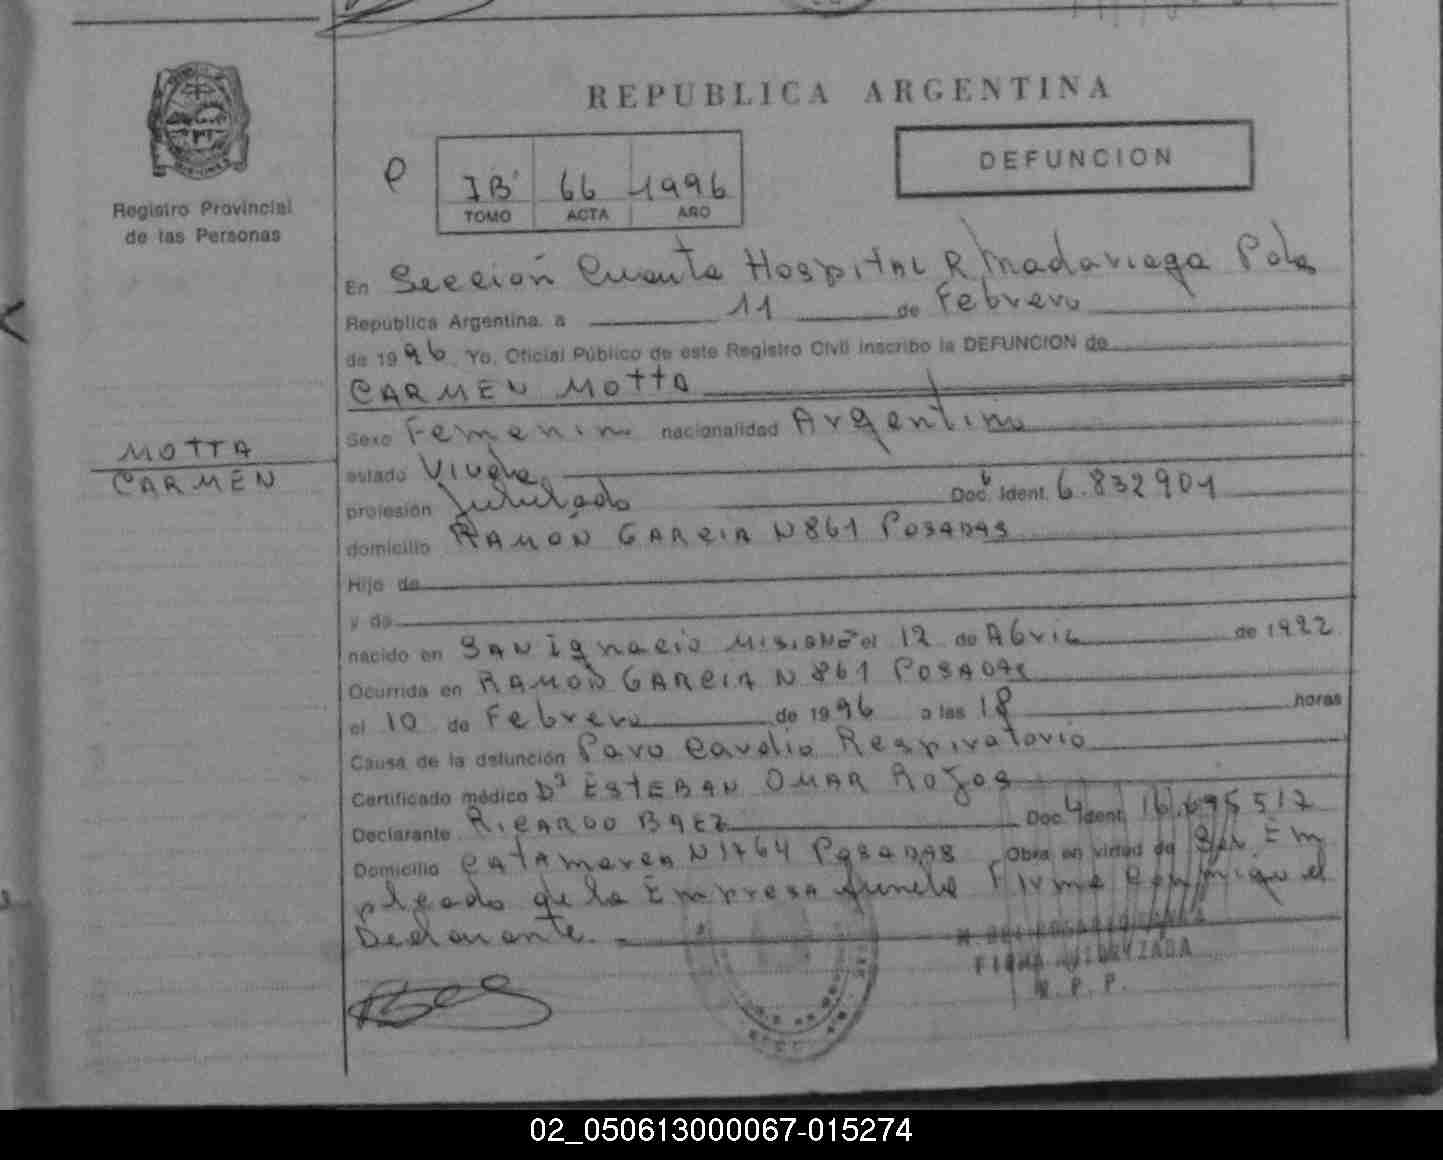 REPUBLICA ARGENTINA
DEFUNCION
P
IB' 66 1996
TOMO ACTA AÑO
Registro Provincial
de las Personas
En Sección Cuarta Hospital R Madariaga Pdas
República Argentina, a 11 de Febrero
de 1996 Yo, Oficial Público de este Registro Civil inscribo la DEFUNCION de
CARMEN MOTTA
MOTTA
CARMEN
Sexo Femenino nacionalidad Argentina
estado Viuda
profesión Jubilado Doc. Ident. 6.832901
domicilio RAMÓN GARCIA N 861 POSADAS
Hijo de
y de
nacido en SAN Ignacio MISIONES el 12 de Abril de 1922
Ocurrida en RAMON GARCIA N 861 POSADAS
el 10 de Febrero de 1996 a las 18 horas
Causa de la defunción Paro Cardio Respiratorio
Certificado médico Dr ESTEBAN OMAR ROJAS
Declarante RICARDO BAEZ Doc. Ident. 16.695512
Domicilio CATAMARCA N 1764 POSADAS Obra en virtud de Ser Em
pleado de la Empresa funebre Firma conmigo el
Declarante.
FIRMA AUTORIZADA
R. P. P.
02_050613000067-015274